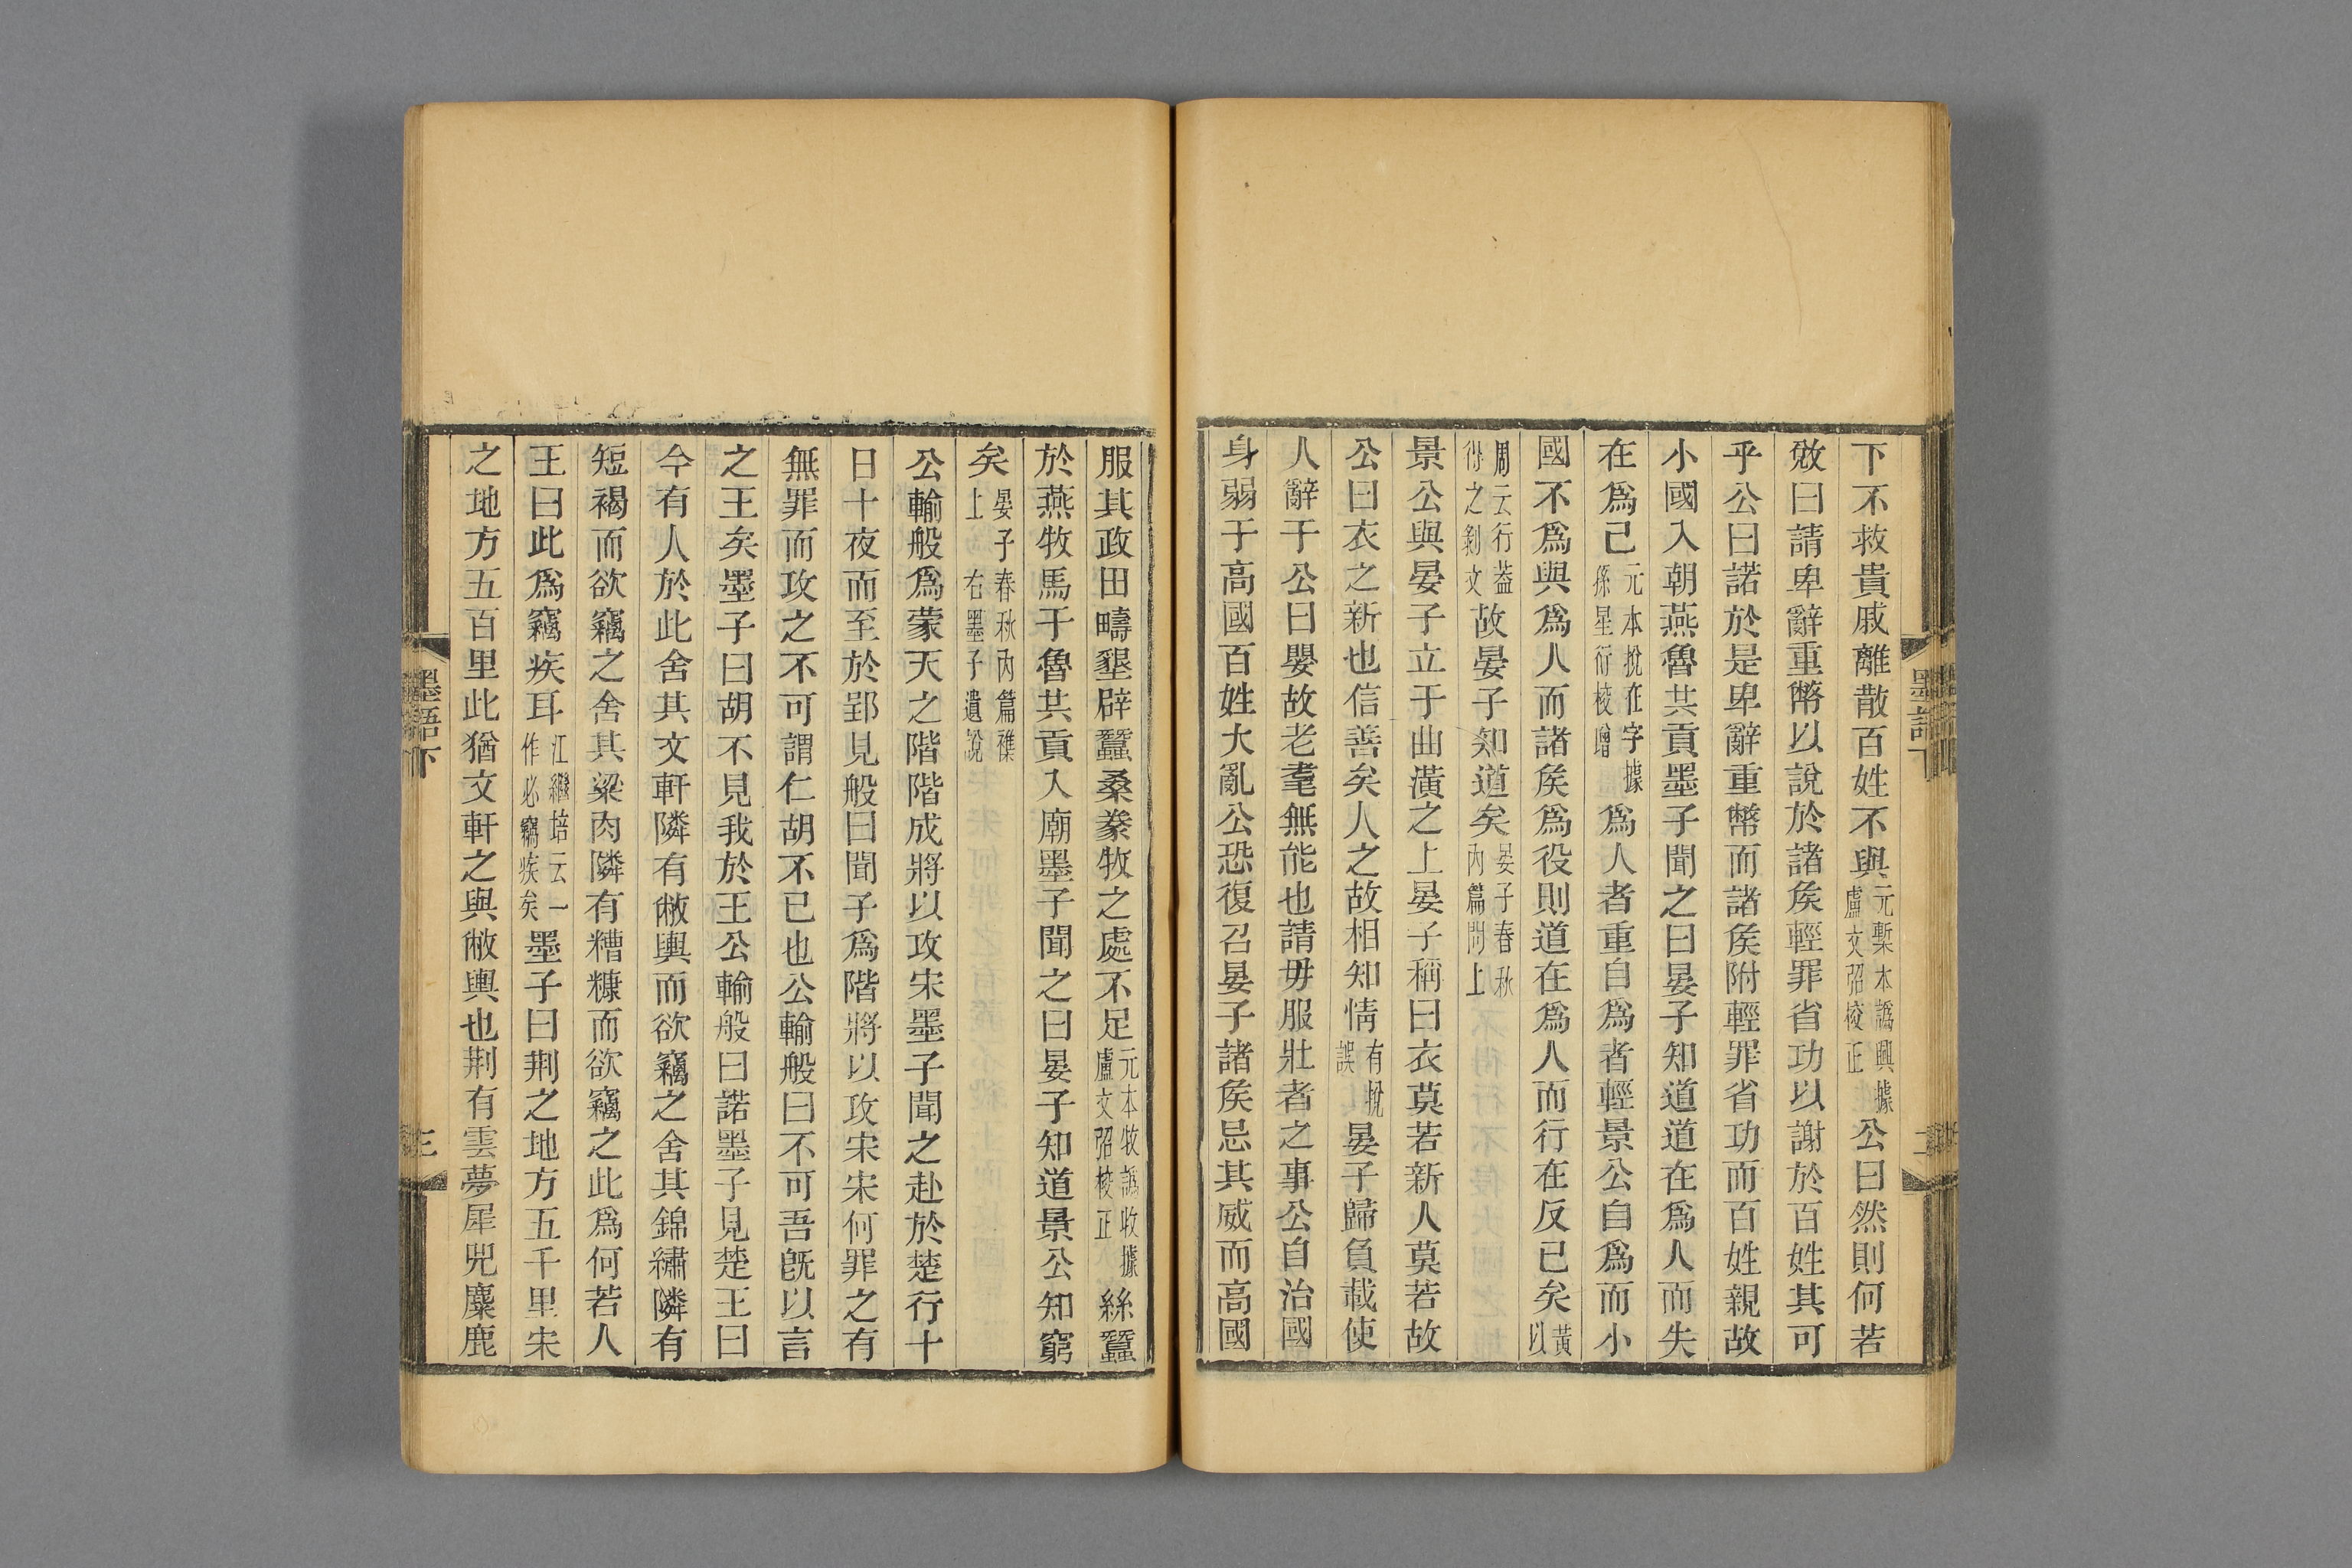 下不救貴戚離散百姓不與元槧本譌興據盧文弨校正公曰然則何若
敓曰請卑辭重幣以說於諸矦輕罪省功以謝於百姓其可
乎公曰諾於是卑辭重幣而諸矦附輕罪省功而百姓親故
小國入朝燕魯共貢墨子聞之曰晏子知道道在爲人而失
在爲己元本挩在字據孫星衍校增爲人者重自爲者輕景公自爲而小
國不爲與爲人而諸矦爲役則道在爲人而行在反己矣黃以
周云行葢得之剝文故晏子知道矣晏子春秋內篇問上
景公與晏子立于曲潢之上晏子稱曰衣莫若新人莫若故
公曰衣之新也信善矣人之故相知情有挩誤晏子歸負載使
人辭于公曰嬰故老耄無能也請毋服壯者之事公自治國
身弱于高國百姓大亂公恐復召晏子諸矦忌其威而高國
墨語下
二
服其政田疇墾辟蠶桑豢牧之處不足元本牧譌收據盧文弨校正絲蠶
於燕牧馬于魯共貢入廟墨子聞之曰晏子知道景公知窮
矣晏子春秋內篇襍上右墨子遺說
公輸般爲蒙天之階階成將以攻宋墨子聞之赴於楚行十
日十夜而至於郢見般曰聞子爲階將以攻宋宋何罪之有
無罪而攻之不可謂仁胡不已也公輸般曰不可吾旣以言
之王矣墨子曰胡不見我於王公輸般曰諾墨子見楚王曰
今有人於此舍其文軒隣有敝輿而欲竊之舍其錦繡隣有
短褐而欲竊之舍其粱肉隣有糟糠而欲竊之此爲何若人
王曰此爲竊疾耳江繼培云一作必竊疾矣墨子曰荆之地方五千里宋
之地方五百里此猶文軒之與敝輿也荆有雲夢犀兕麋鹿
墨語下
三